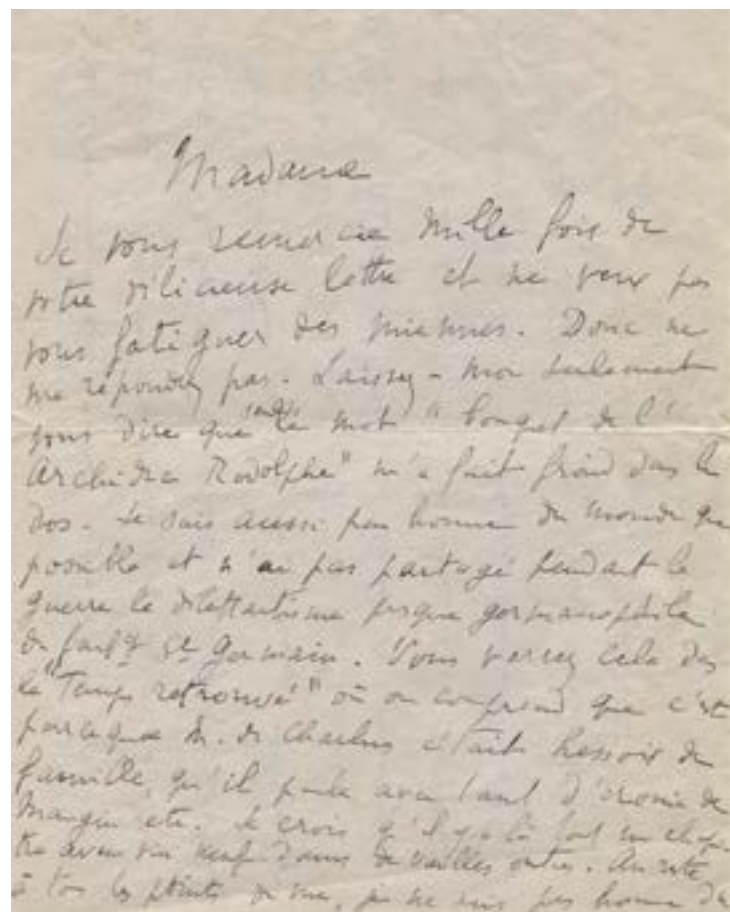 Madame
Je vous remercie mille fois de
votre délicieuse lettre et ne veux pas
vous fatiguer des miennes. Donc ne
me répondez pas. Laissez-moi seulement
vous dire que le mot "bouquet de l'
Archiduc Rodolphe" m'a fait froid dans le
dos. Je suis aussi peu homme du monde que
possible et n'ai pas partagé pendant la
guerre le dilettantisme presque germanophile
du faubg St Germain. Vous verrez cela dans
le "Temps retrouvé" où on comprend que c'est
parce que M. de Charlus était bavarois de
famille, qu'il parle avec tant d'ironie de
Mangin etc. Je crois qu'il y a là tout un chapi
tre avec vin neuf dans de vieilles outres. Au reste
à tous les points de vue, je ne suis pas homme du